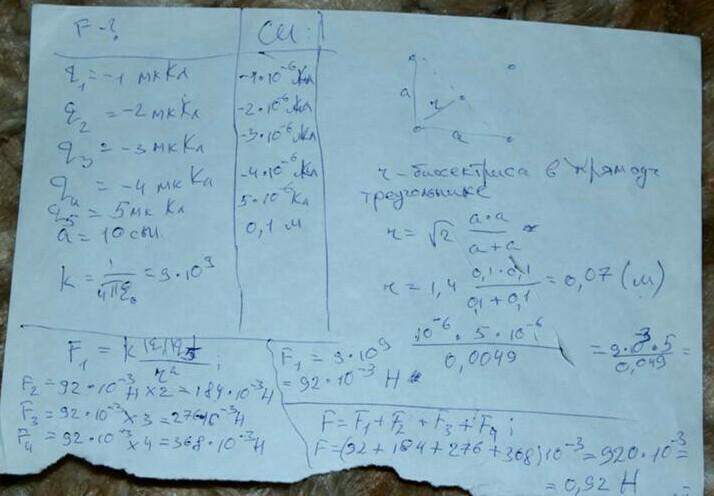 F - ?
СИ:
q₁ = -1 мкКл
-1·10⁻⁶Кл
q₂ = -2 мкКл
-2·10⁻⁶Кл
q₃ = -3 мкКл
-3·10⁻⁶Кл
q₄ = -4 мкКл
-4·10⁻⁶Кл
q₅ = 5 мкКл
5·10⁻⁶Кл
a = 10 см.
0,1 м
k = 1/4πε₀ = 9·10⁹
a
r
a
r - биссектриса в прямоуг
треугольнике
r = √2 a·a/a+a
r = 1,4 0,1·0,1/0,1+0,1 = 0,07 (м)
F₁ = k|q₁||q₅|/r²;
F₁ = 9·10⁹ 10⁻⁶·5·10⁻⁶/0,0049 = 9·10⁻³·5/0,049 =
= 92·10⁻³ Н
F₂ = 92·10⁻³Н × 2 = 184·10⁻³Н
F₃ = 92·10⁻³ × 3 = 276·10⁻³Н
F₄ = 92·10⁻³ × 4 = 368·10⁻³Н
F = F₁ + F₂ + F₃ + F₄;
F = (92 + 184 + 276 + 368)10⁻³ = 920·10⁻³ =
= 0,92 Н